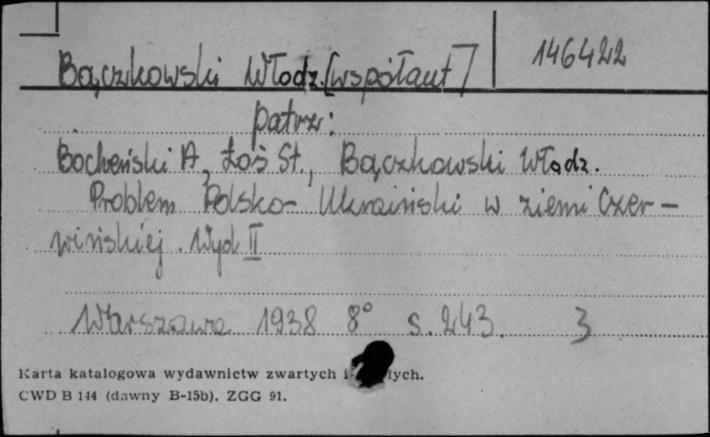 Bączkowski Włodz. [współaut]
146422
patrz:
Bocheński A, Łoś St., Bączkowski Włodz.
Problem Polsko-Ukraiński w ziemi Czer-
wińskiej. Wyd II
Warszawa 1938 8° s. 243. 3
Karta katalogowa wydawnictw zwartych i
CWD B 144 (dawny B-15b). ZGG 91.